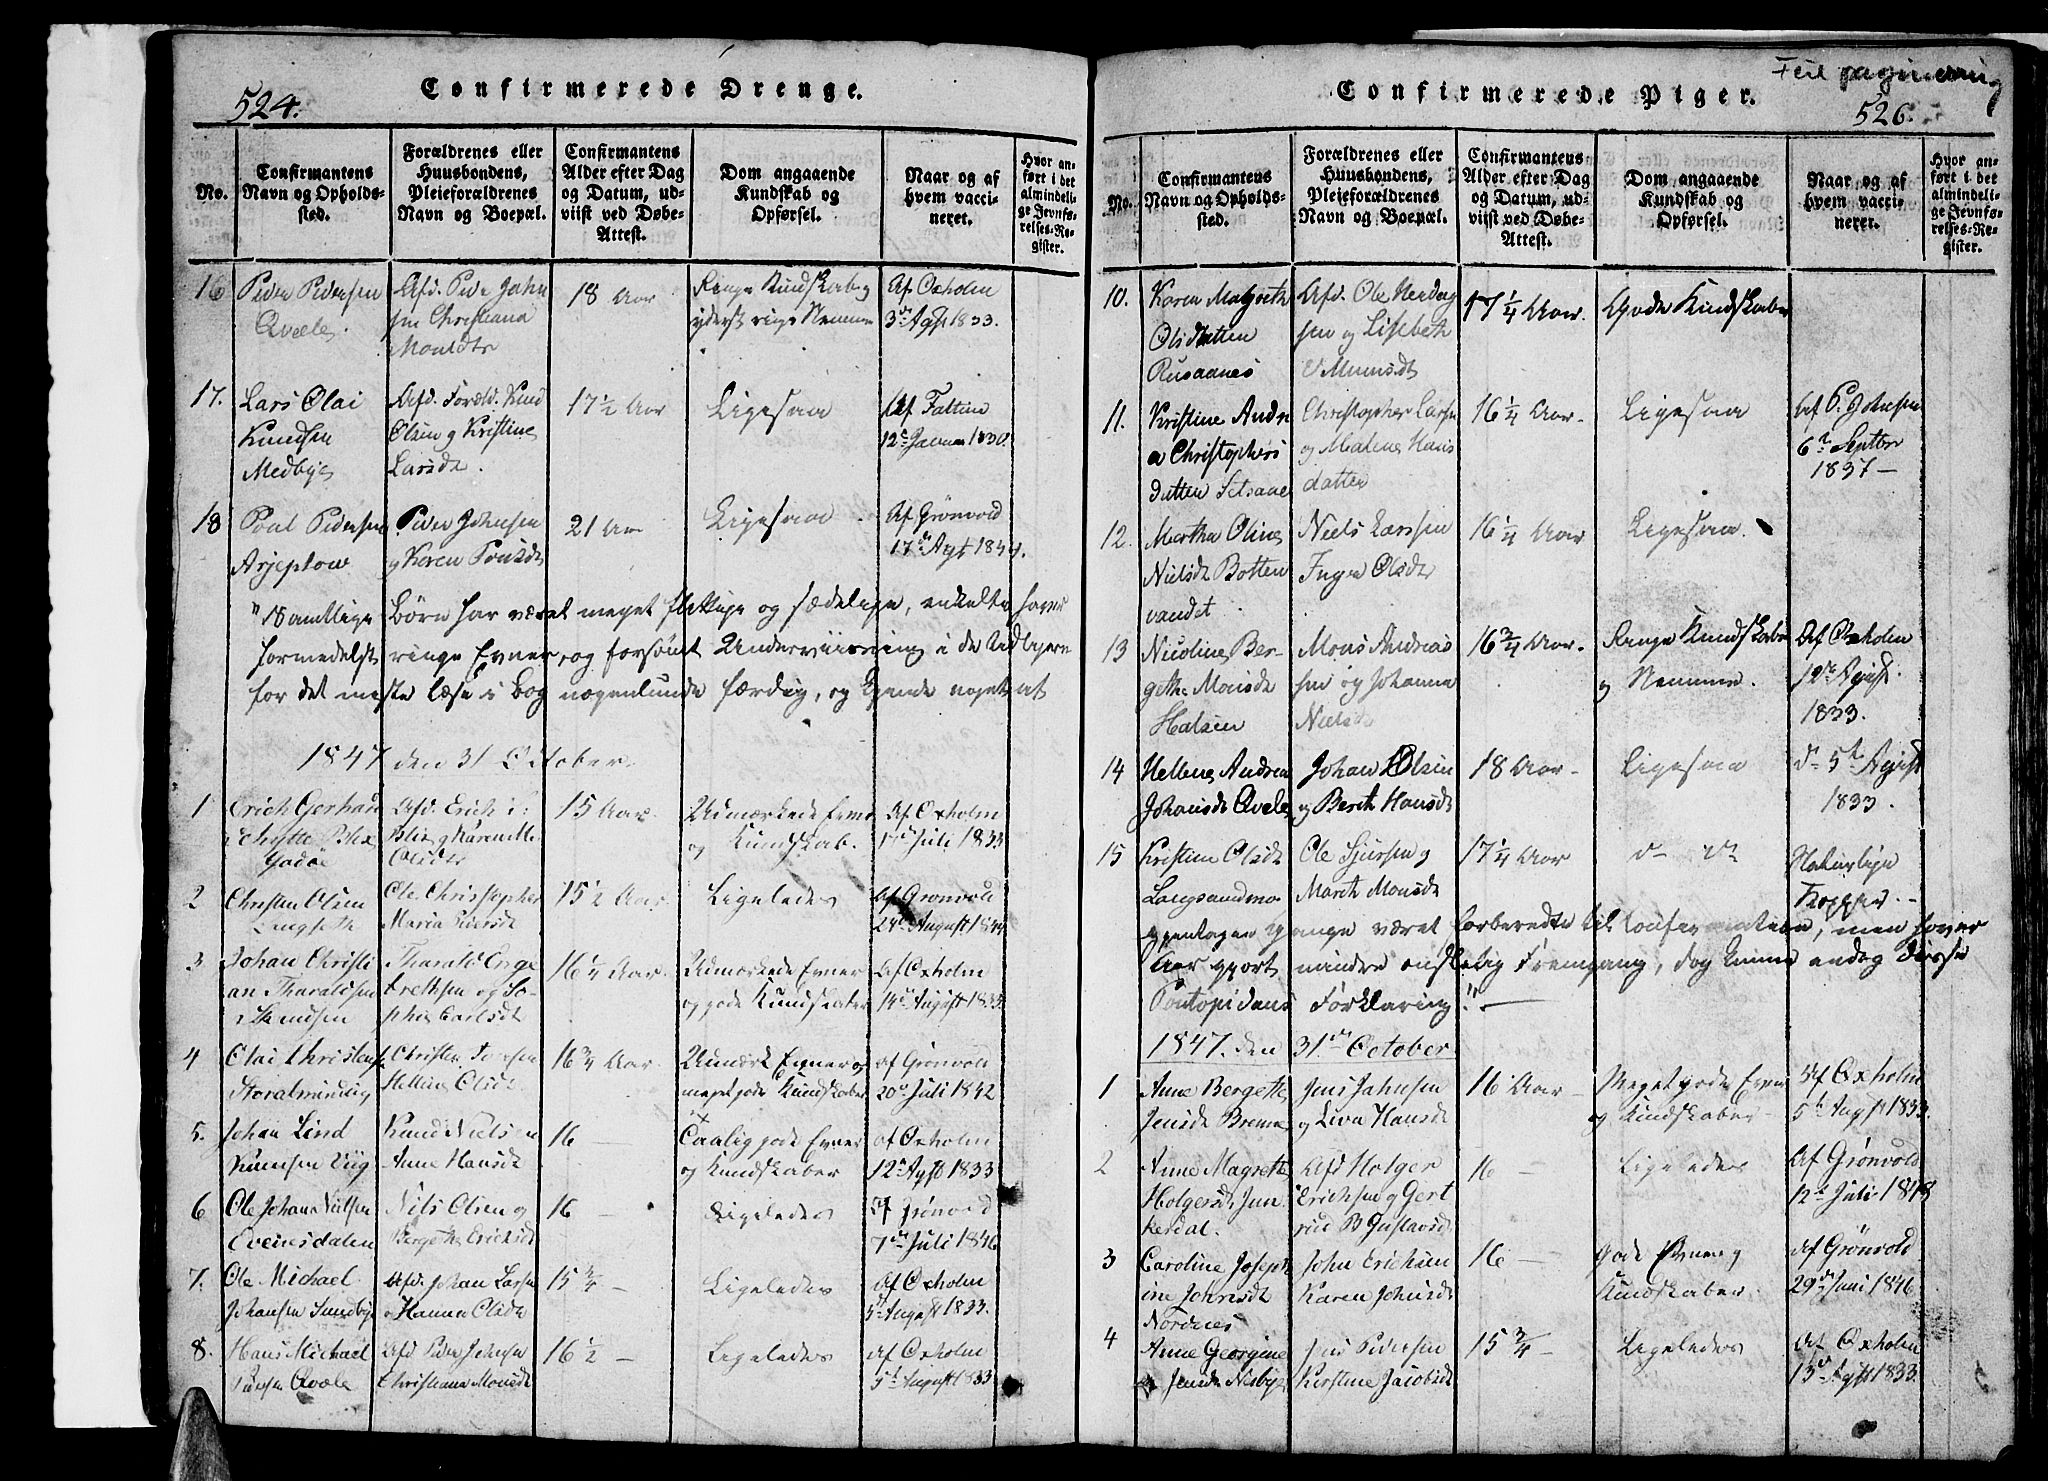 524.
Confirmerede Drenge.
No.
Confirmantens
Navn og Opholds-
sted.
Forældrenes eller
Huusbondens,
Pleieforældrenes
Navn og Boepæl.
Confirmantens
Alder efter Dag
og Datum, ud-
viist ved Døbe-
Attest.
Dom angaaende
Kundskab og
Opførsel.
Naar og af
hvem vacci-
neret.
Hvor an-
ført i det
almindeli-
ge Jevnfø-
relses-Re-
gister.
16
Peder Pedersen
Qvæle
Afd. Peder John
sen Christiana
18 Aar
Ringe Kundskab og
yderst ringe Nemme
Af Oxholm
3de Agst 1833.
17.
Lars Olai
Knudsen
Medbye
Afd. Foræld. Knud
Olsen og Kristine
Larsdr.
17 1/2 Aar
Ligesaa
Af
12te Januar 1830.
18
Poul Pedersen
Arjeplow
Peder Johnsen
og Karen
21 Aar
Ligesaa
Af Grønvold
17de Agst
"Samtlige Børn har været meget flittige og sædelige, enkelte have
formedelst ringe Evner, og forsømt Underviisning i de
for det meste læse i Bog nogenlunde færdig, og Kjende noget af
1847 den 31 October
1
Erich Gerhard
Schytte Blix
Afd. Erich
Blix og
Olsdr
15 Aar
Udmærkede Evner
og Kundskab.
Af Oxholm
Juli 1833
2
Christen Olsen
Ole Christopher
Maria
15 1/2 Aar
Ligeledes
Af Grønvold
August
3
Johan Christi
an Tharaldsen
Tharald Inge
bretsen og So-
phie Carlsdr
16 1/4 Aar
Udmærkede Evner
og gode Kundskaber
Af Oxholm
14de August 1833
4
Olai Christens.
Storalmindig
Christen
Helline Olsdr
16 3/4 Aar
Evner og
meget gode Kundskaber
Af Grønvold
20de Juli 1842
5.
Johan Lind
Knudsen Viig
Knud Nielsen
Anne Hansdr
16 —
Taalig gode Evner
og Kundskaber
af Oxholm
12te Agst 1833
6
Ole Johan Nielsen
Evenesdalen
Nils Olsen og
Bergethe Ericksdr
16 —
Ligeledes
Af Grønvold
7de Juli 1846
7.
Ole Michael
Johansen Sundby
Afd. Johan Larsen
og Hanna Olsdr
15 3/4 —
Ligeledes
af Oxholm
5te August 1833.
8.
Hans Michael
Qvæle
Afd Peder Johnsen
Christiana Monsdr
16 1/2 —
Ligeledes
af Oxholm
5te August 1833
Feil paginering
526.
Confirmerede Piger.
No.
Confirmantens
Navn og Opholds-
sted.
Forældrenes eller
Huusbondens,
Pleieforældrenes
Navn og Boepæl.
Confirmantens
Alder efter Dag
og Datum, ud-
viist ved Døbe-
Attest.
Dom angaaende
Kundskab og
Opførsel.
Naar og af
hvem vacci-
neret.
Hvor an-
ført i det
almindeli-
ge Jevnfø-
relses-Re-
gister.
10.
Karen Magreth
Olsdatter
Rusaanes
Afd. Ole
sen og Lisebeth
17 1/4 Aar.
Gode Kundskaber
11.
Kristine Andre
a Christophers
datter Setsaae
Christopher Larsen
og Malene Hans
datter
16 1/4 Aar.
Ligesaa
Af P. Johnsen
6te Septbr
1837 —
12.
Martha Oline
Nielsdr Botten
vandet
Niels Larssen
Inger Olsdr
16 1/4 Aar
Ligesaa.
13
Nicoline Ber-
gethe Monsdr
Halsen
Mons Andreas
sen og Johanna
Nielsdr
16 3/4 Aar.
Ringe Kundskaber
og Nemme.
Af Oxholm
12te Agust.
1833.
14
Hellene Andrea
Johansdr Qvæle
Johan Olsen
og Berith Hansdr
18 Aar
Ligesaa
do 5te Agust
1833.
15
Kristine Olsdr
Langsandmo
Ole Sjursen og
Mareth Monsdr
17 1/4 Aar
do do
Naturlige
Kopper. —
gjentagen Gange været forberedte til Confirmationen, men have
Aar gjort mindre ønskelig Fremgang, dog kunne endog disse
Pontopidans Forklaring" —
1847. den 31te October
1
Anne Bergethe
Jensdr Bremnes
Jens Johnsen
og Liva Hansdr
16 Aar
Meget gode Evner
og Kundskaber
Af Oxholm
5te Augst 1833.
2
Anne Magrethe
Holgersdr Jun
kerdal.
Afd Holger
Erichsen og Gert
rud B Gustavsdr
16 —
Ligeledes
Af Grønvold
12te Juli 1843
3
Caroline Joseph
ine Johnsdr
Nordnes
John Erichsen
Karen Johnsdr
16 —
gode Evner og
Kundskaber.
Af Grønvold
29de Juni 1846
4
Anne Georgine
Jensdr Nesbye
Jens Pedersen
Kirstine Jacobsdr
15 3/4 —
Ligeledes
Af Oxholm
13de Agst 1833.